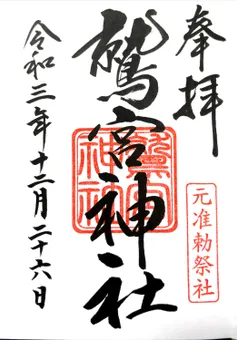 奉拝
元准勅祭社
鷲宮神社
令和三年十二月二十六日